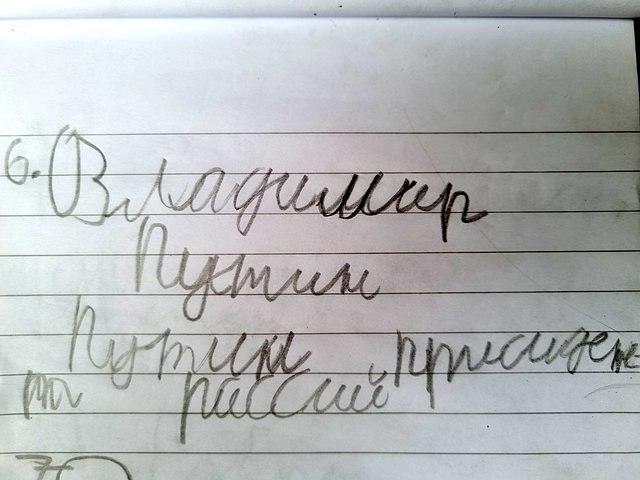 6. Владимир
Путин
Путин присиден
ти рассий
7